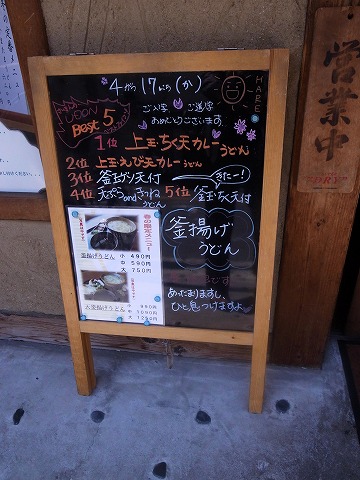 4がつ17にち(か)
HARE
ご入学 ご進学
おめでとうございます。
UDON
Best 5
1位 上玉ちく天カレーうどん
2位 上玉えび天カレーうどん
3位 釜玉ゲソ天付
きたー!
4位 天ぷらandきつね
5位 釜玉ちく天付
春の限定メニュー
釜揚げうどん 小 490円
中 590円
大 750円
小 990円
中 1090円
大 1250円
釜揚げ
うどん
あったまりますし、
ひと息つけますよ
営業中